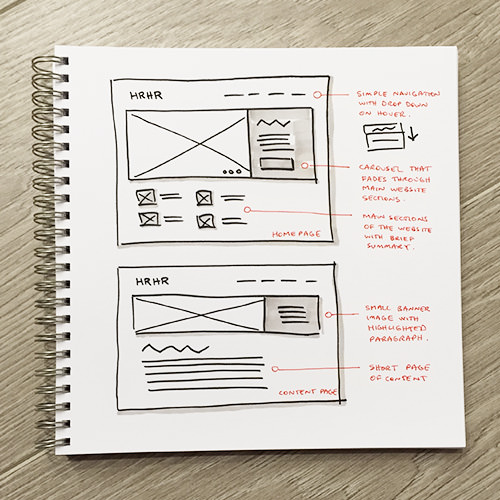 HRHR
SIMPLE NAVIGATION
WITH DROP DOWN
ON HOVER.
CAROUSEL THAT
FADES THROUGH
MAIN WEBSITE
SECTIONS.
MAIN SECTIONS
OF THE WEBSITE
WITH BRIEF
SUMMARY.
HOMEPAGE
HRHR
SMALL BANNER
IMAGE WITH
HIGHLIGHTED
PARAGRAPH.
SHORT PAGE
OF CONTENT
CONTENT PAGE